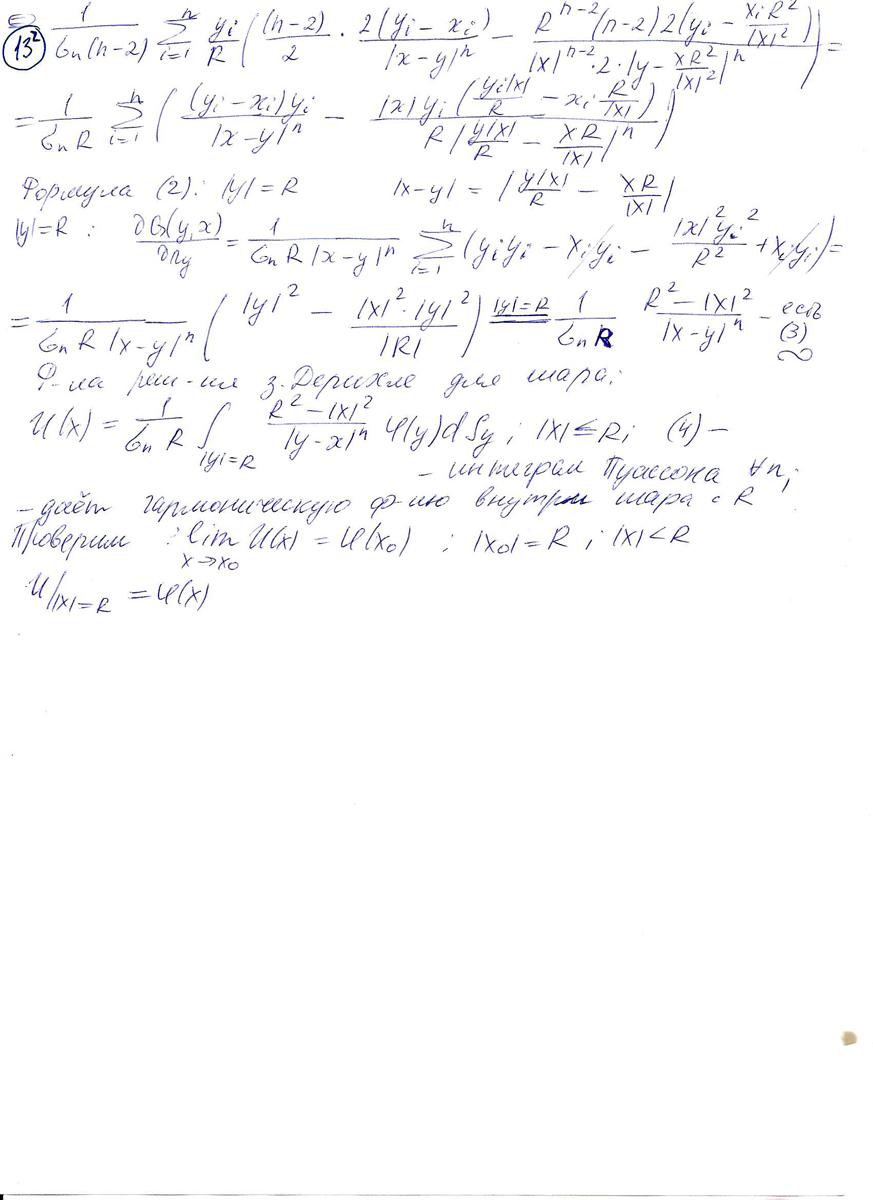 13² ⊜ 1/(σₙ(n-2)) Σᵢ₌₁ⁿ yᵢ/R ( (n-2)/2 · 2(yᵢ - xᵢ)/|x-y|ⁿ - Rⁿ⁻²(n-2)2(yᵢ - xᵢR²/|x|²)/(|x|ⁿ⁻²·2·|y - xR²/|x|²|ⁿ) ) =
= 1/(σₙR) Σᵢ₌₁ⁿ ( (yᵢ-xᵢ)yᵢ/|x-y|ⁿ - |x|yᵢ(yᵢ|x|/R - xᵢ R/|x|)/(R|y|x|/R - xR/|x||ⁿ) )
Формула (2): |y| = R |x-y| = |y|x|/R - xR/|x||
|y|=R : ∂G(y,x)/∂n_y = 1/(σₙR|x-y|ⁿ) Σᵢ₌₁ⁿ (yᵢyᵢ - xᵢyᵢ - |x|²yᵢ²/R² + xᵢyᵢ) =
= 1/(σₙR|x-y|ⁿ) ( |y|² - |x|²·|y|²/|R| ) =(|y|=R) 1/(σₙR) (R²-|x|²)/|x-y|ⁿ - есть (3)
Ф-ла реш-ия з. Дерихле для шара:
U(x) = 1/(σₙR) ∫_{|y|=R} (R²-|x|²)/|y-x|ⁿ φ(y)dS_y ; |x|≤R; (4) -
- интеграл Пуассона ∀n;
- даёт гармоническую ф-ию внутри шара с R
Проверим : lim_{x→x₀} U(x) = φ(x₀) ; |x₀| = R ; |x|<R
U/_{|x|=R} = φ(x)